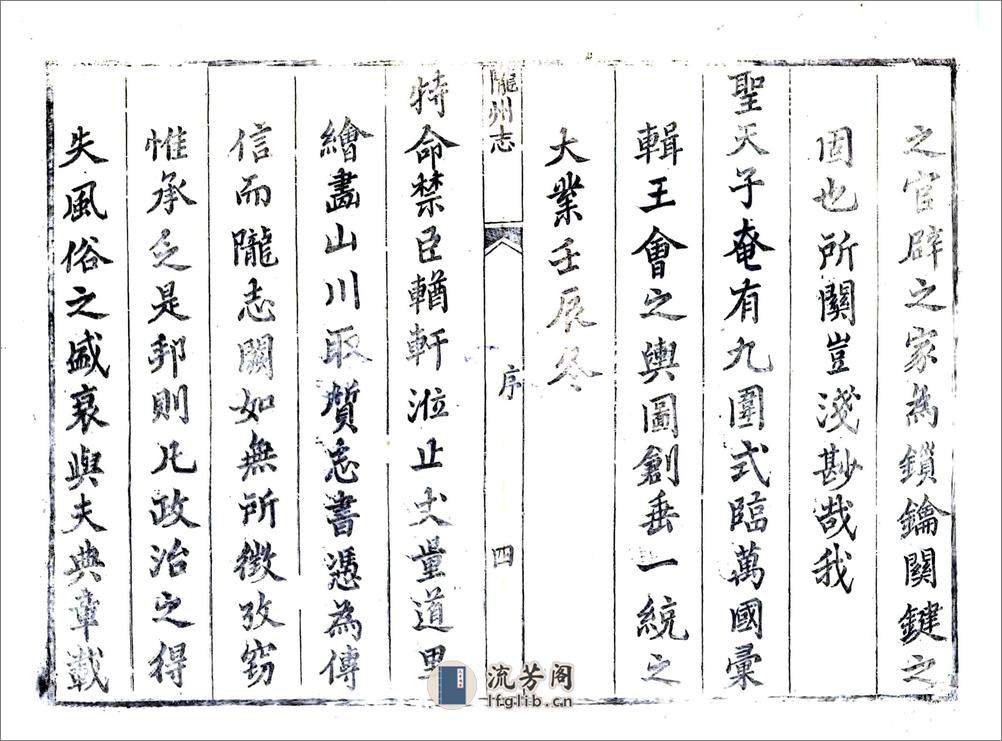 之官辟之家為鎖鑰關鍵之
固也所關豈淺尠哉我
聖天子奄有九圍式臨萬國彙
輯王會之輿圖創垂一統之
大業壬辰冬
隴州志
序
四
特命禁臣輶軒涖止丈量道里
繪畵山川取質志書憑為傳
信而隴志闕如無所徵攷竊
惟承乏是邦則凡政治之得
失風俗之盛衰與夫典章載
流芳阁
lfglib.cn